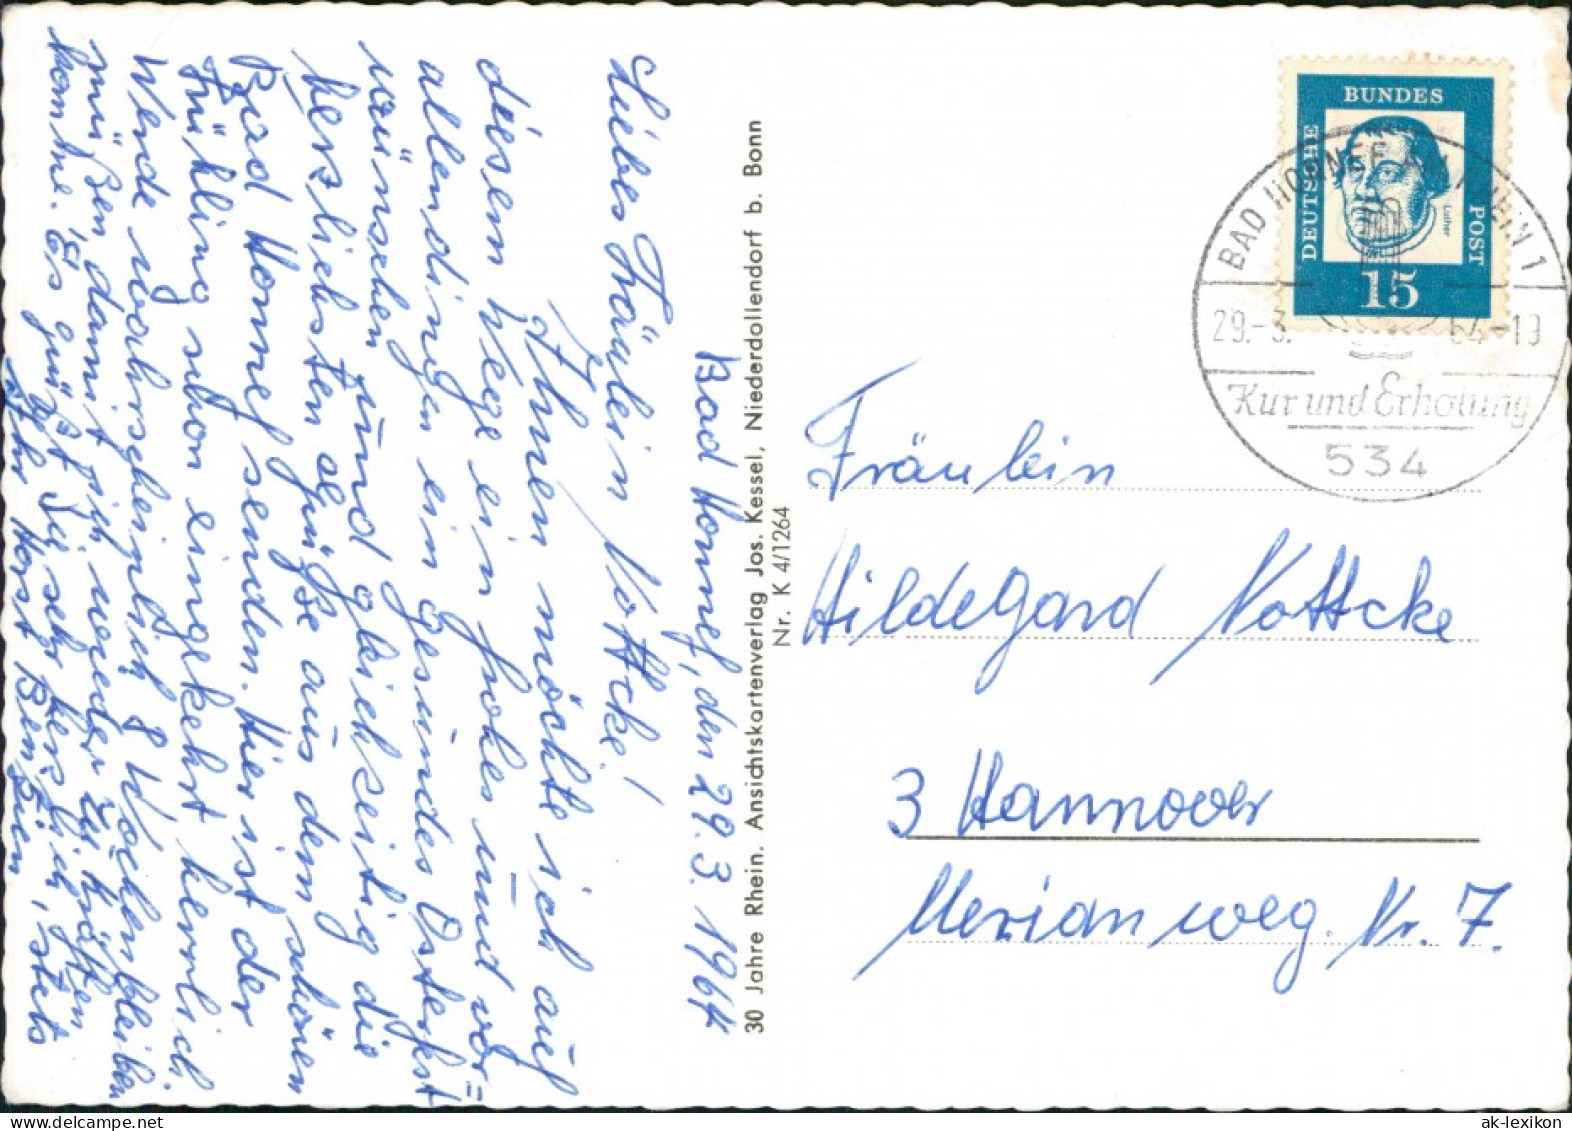 Bad Honnef, den 29.3.1964
Liebes Fräulein Nottcke!
Ihnen möchte ich auf
diesem Wege ein frohes und vor=
allendingen ein gesundes Osterfest
wünschen und gleichseitig die
herzlichsten Se grüße aus dem schönen
Bad Honnef senden. Hier ist der
Frühling schon eingekehrt, herrlich.
Werde wahrscheinlich 8 Wochen bleiben
müßen, damit ich wieder zu Kräften
komme. Es grüßt Sie sehr herzlich, stets
Ihr Horst
30 Jahre Rhein. Ansichtskartenverlag Jos. Kessel, Niederdollendorf b. Bonn
Nr. K 4/1264
DEUTSCHE BUNDES POST
Luther
15
BAD HONNEF AM RHEIN 1
29.-3. 64-19
Kur und Erholung
534
Fräulein
Hildegard Nottcke
3 Hannover
Merianweg. Nr. 7.
ak-lexikon